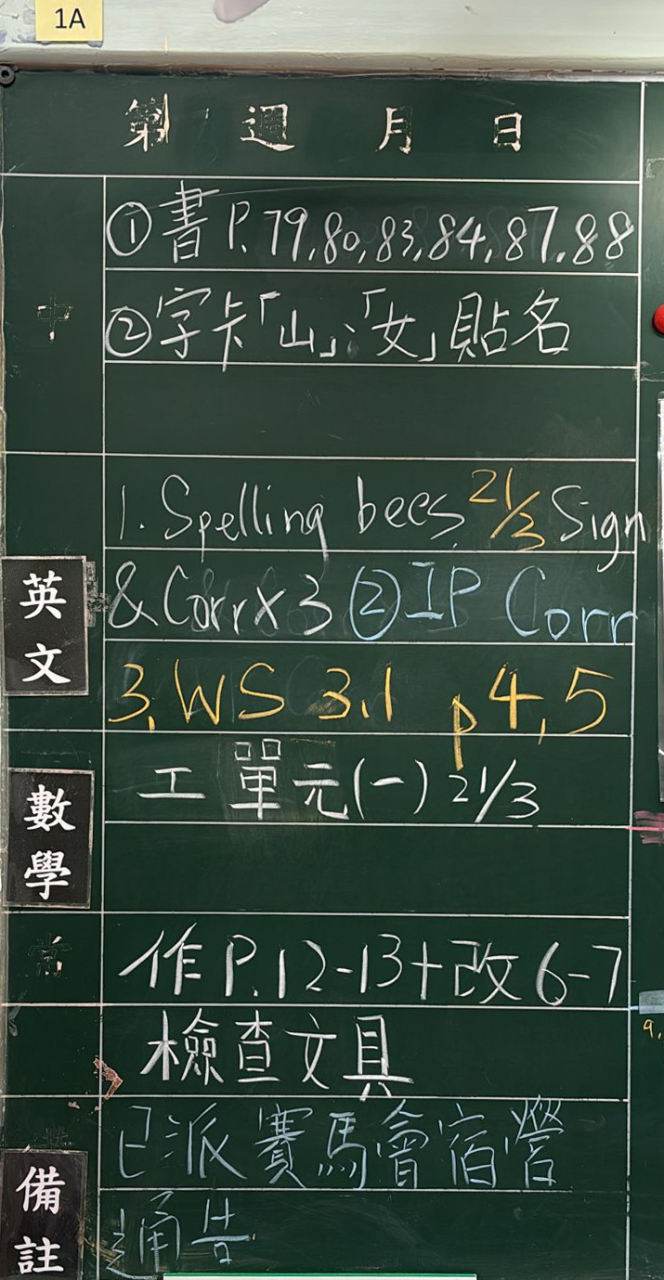 1A
第 週 月 日
中
①書P.79,80,83,84,87,88
②字卡「山」、「女」貼名
英文
1. Spelling bees 21/3 Sign
& Corr x 3 ②IP Corr
3. WS 3.1 p 4,5
數學
工 單元(一) 21/3
常
作P.12-13+改6-7
檢查文具
備註
已派賽馬會宿營
通告